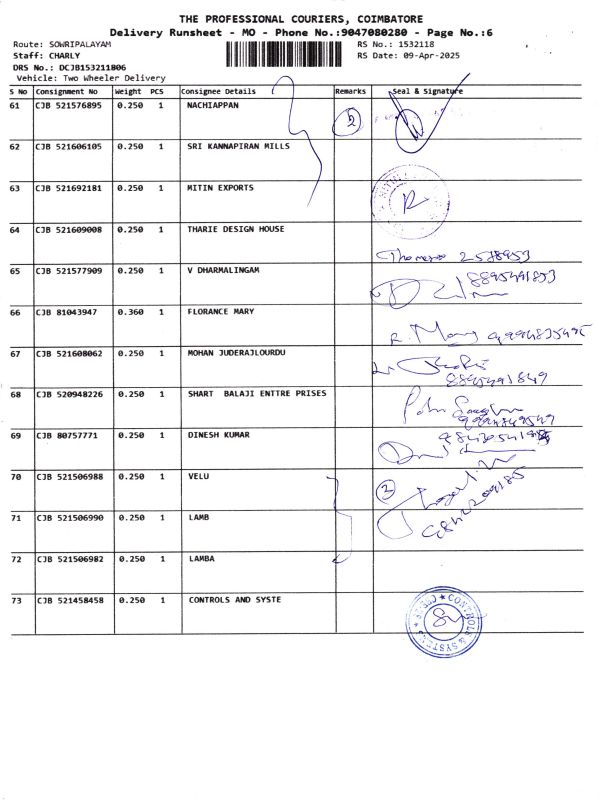 THE PROFESSIONAL COURIERS, COIMBATORE
Delivery Runsheet - MO - Phone No.:9047080280 - Page No.:6
Route: SOWRIPALAYAM RS No.: 1532118
Staff: CHARLY RS Date: 09-Apr-2025
DRS No.: DCJB153211806
Vehicle: Two Wheeler Delivery
S No Consignment No Weight PCS Consignee Details Remarks Seal & Signature
61 CJB 521576895 0.250 1 NACHIAPPAN 2
62 CJB 521606105 0.250 1 SRI KANNAPIRAN MILLS
63 CJB 521692181 0.250 1 MITIN EXPORTS
64 CJB 521609008 0.250 1 THARIE DESIGN HOUSE
65 CJB 521577909 0.250 1 V DHARMALINGAM 8895491853
66 CJB 81043947 0.360 1 FLORANCE MARY
67 CJB 521608062 0.250 1 MOHAN JUDERAJLOURDU
8895491849
68 CJB 520948226 0.250 1 SHART BALAJI ENTTRE PRISES
69 CJB 80757771 0.250 1 DINESH KUMAR
70 CJB 521506988 0.250 1 VELU 2
71 CJB 521506990 0.250 1 LAMB
72 CJB 521506982 0.250 1 LAMBA
73 CJB 521458458 0.250 1 CONTROLS AND SYSTE
CONTROLS & SYSTEMS